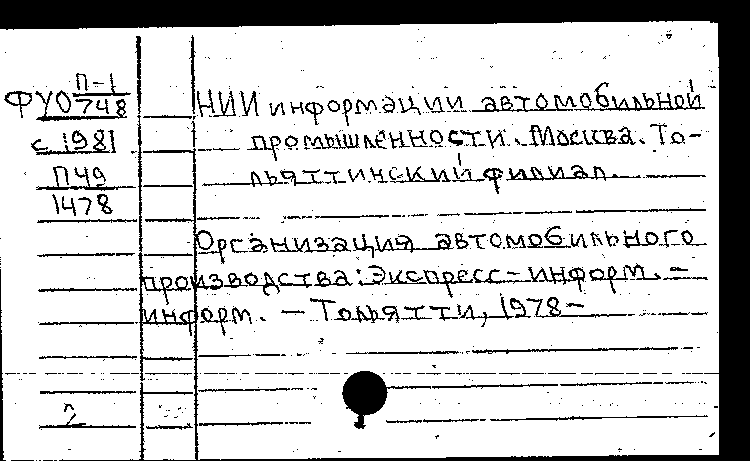 П-1
ФУО 748
с 1981
П49
1478
НИИ информации автомобильной
промышленности. Москва. То-
льяттинский филиал.
Организация автомобильного
производства: Экспресс-информ. -
информ. - Тольятти, 1978-
2